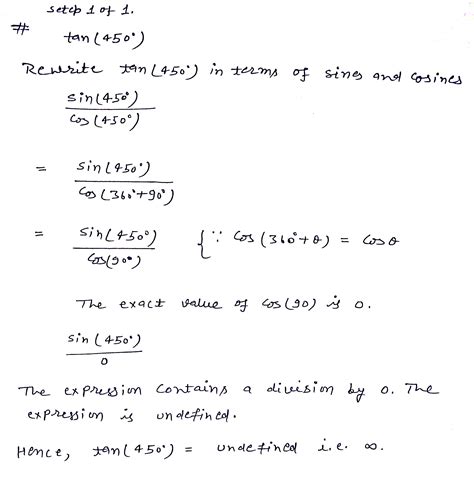 setcp 1 of 1.
# tan(450°)
Rewrite tan(450°) in terms of sines and cosines
sin(450°)
cos(450°)
= sin(450°)
cos(360°+90°)
= sin(450°) {∵ cos(360°+θ) = cosθ
cos(90°)
The exact value of cos(90) is 0.
sin(450°)
0
The expression contains a division by 0. The
expression is undefined.
Hence, tan(450°) = undefined i.e. ∞.